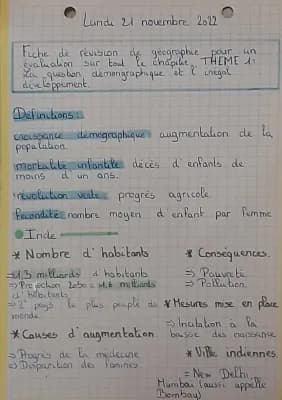 Lundi 21 novembre 2022
Fiche de révision de géographie pour un
évaluation sur tout le chapitre, THEME 1:
La question démographique et l'inégal
développement.
Définitions:
croissance démographique augmentation de la
population.
mortalité infantile décès d'enfants de
moins d'un ans.
révolution verte progrès agricole.
fécondité nombre moyen d'enfant par femme
Inde
* Nombre d'habitants
⇒ 1,3 milliards d'habitants
⇒ Projection 2050 = 1.6 milliards
d'habitants
⇒ 2e pays le plus peuplé du
monde.
* Causes d'augmentation
⇒ Progrès de la médecine
⇒ Disparition des famines
* Conséquences.
⇒ Pauvreté
⇒ Pollution.
* Mesures mise en place
⇒ Incitation à la
baisse des naissance
* Ville indiennes.
⇒ New Delhi,
Mumbai (aussi appelé
Bombay)